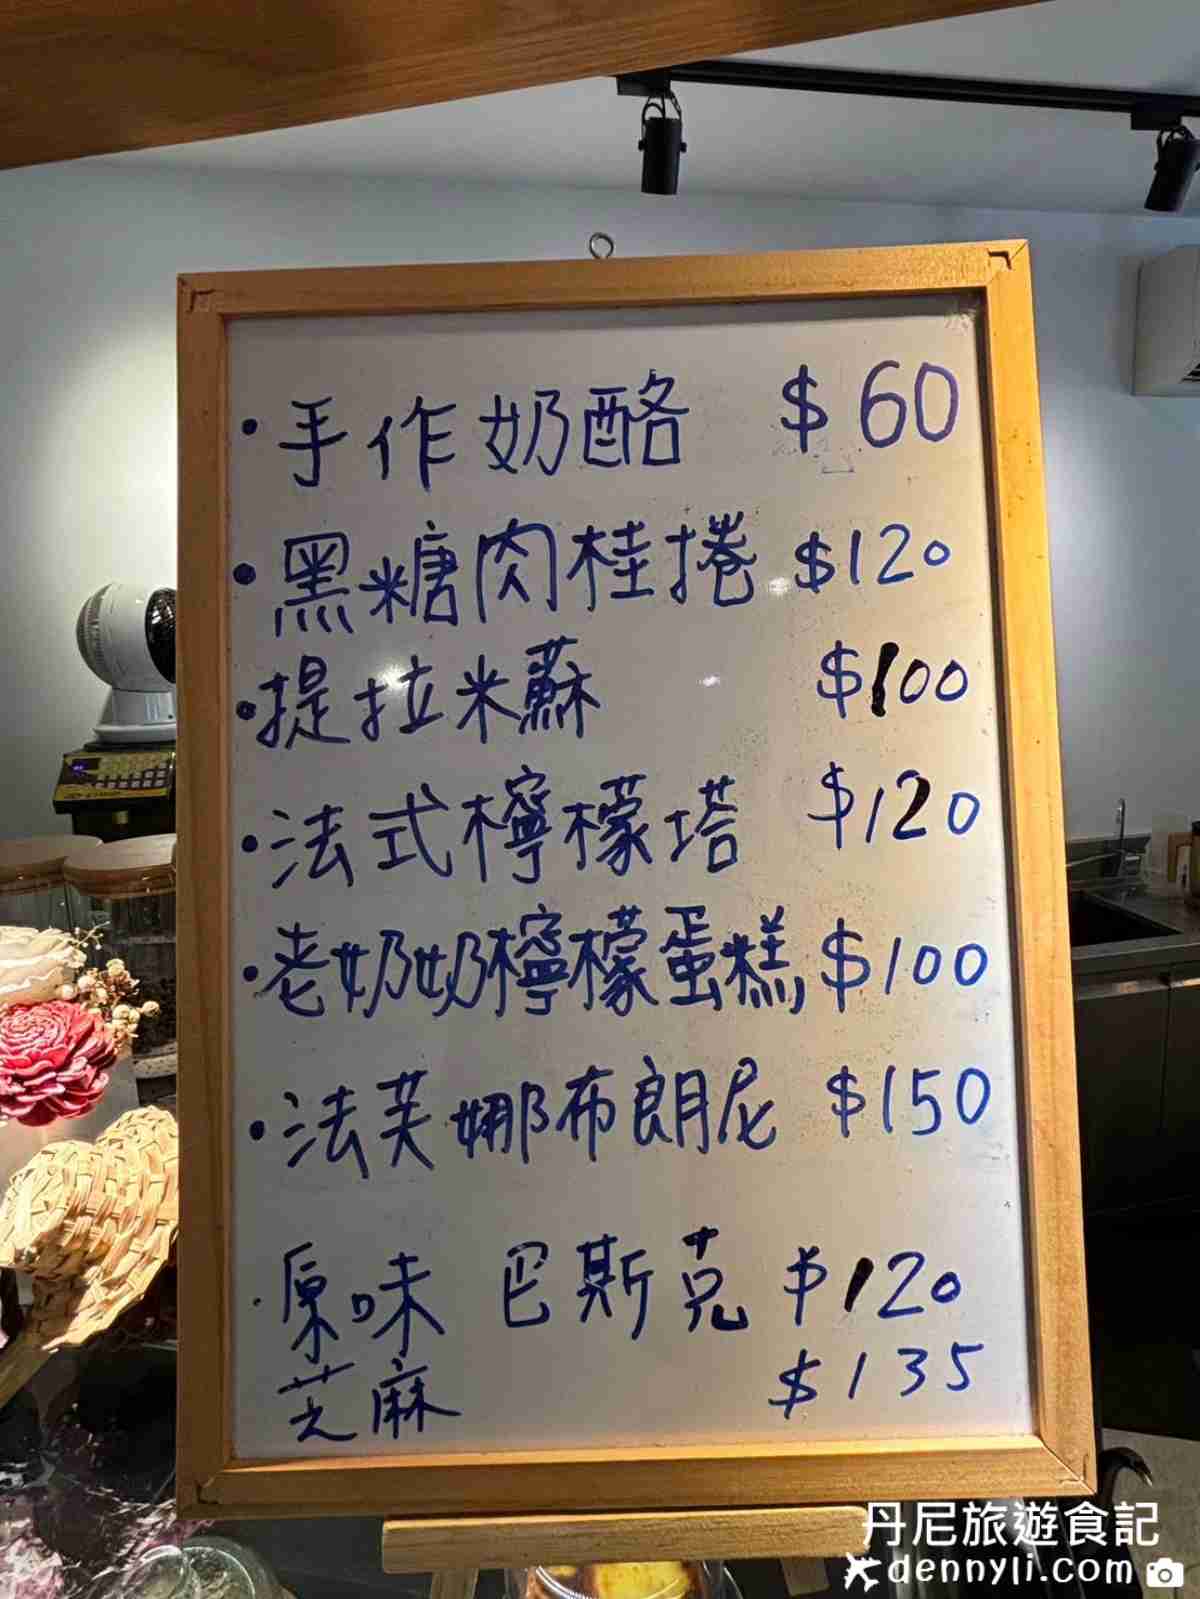 ・手作奶酪 $60
・黑糖肉桂捲 $120
・提拉米蘇 $100
・法式檸檬塔 $120
・老奶奶檸檬蛋糕 $100
・法芙娜布朗尼 $150
・原味 巴斯克 $120
芝麻 $135
丹尼旅遊食記
dennyli.com